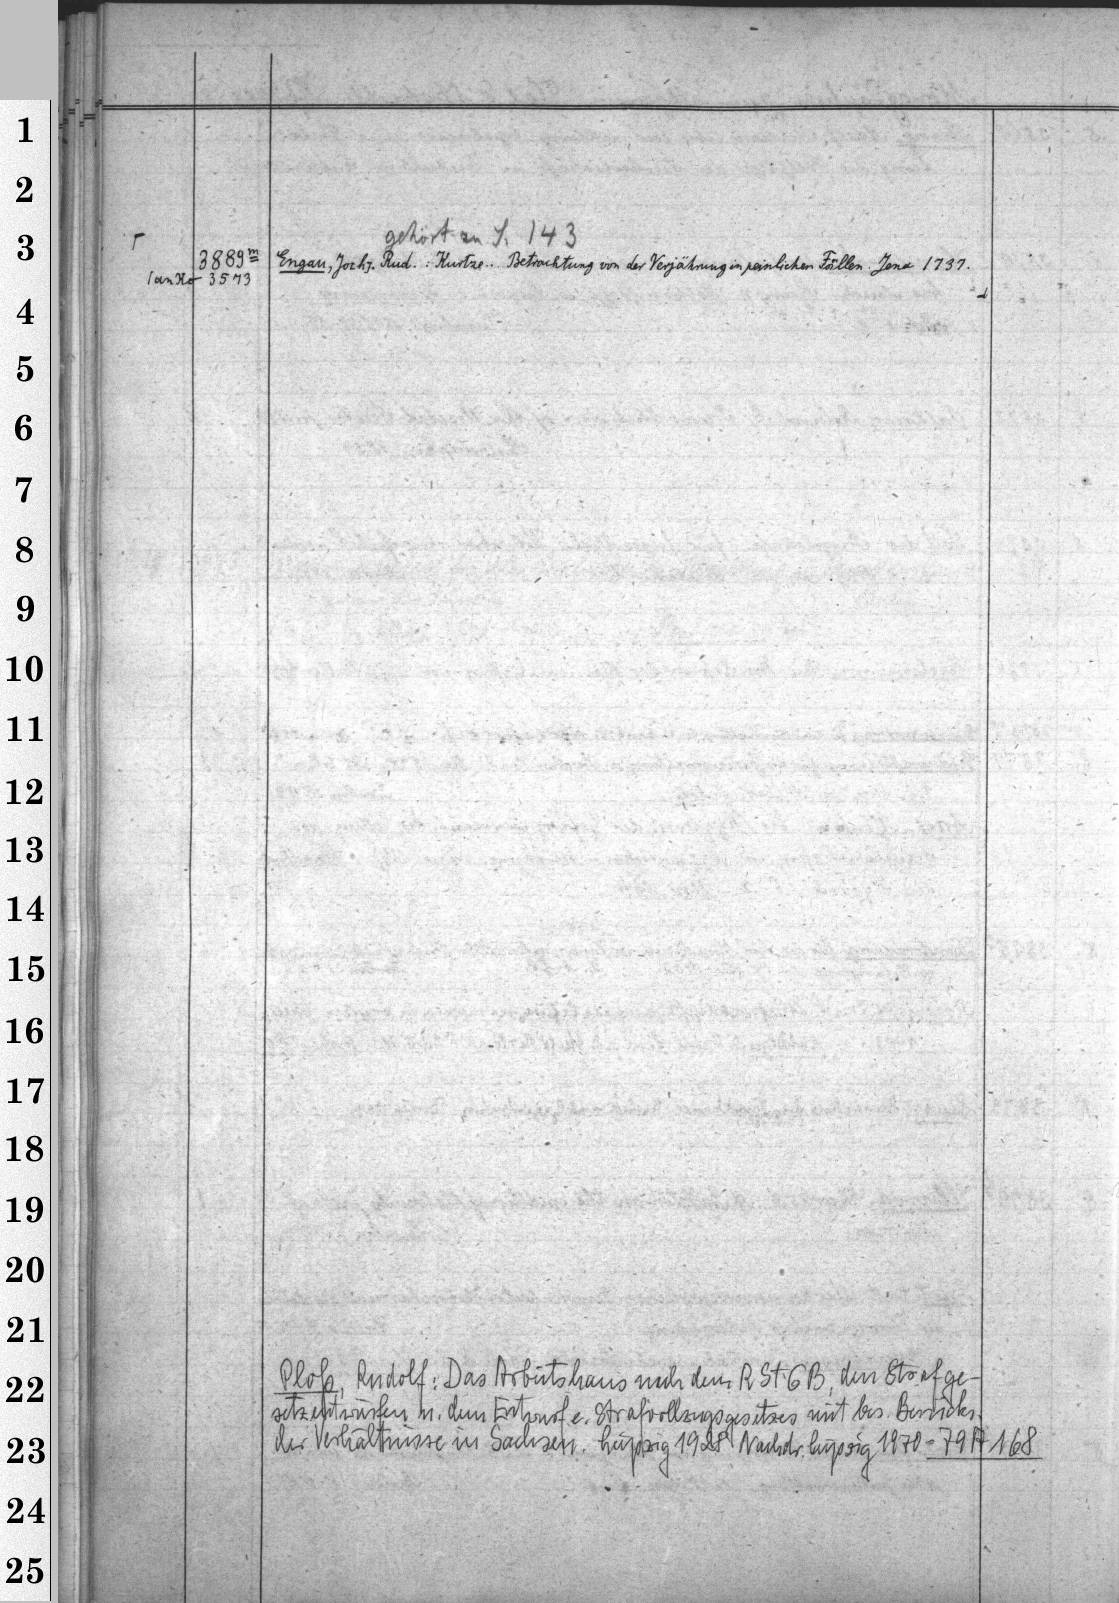 1
2
3
4
5
6
7
8
9
10
11
12
13
14
15
16
17
18
19
20
21
22
23
24
25
gehört zu S. 143
3889m Engau, Joch. Rud.: Kurtze.. Betrachtung von der Verjährung in peinlichen Fällen. Jena 1737.
(an No 3573
Ploß, Rudolf: Das Arbeitshaus nach dem RStGB, den Strafge-
setzentwürfen u. dem Entwurf e. Strafvollzugsgesetzes mit bes. Berücks.
der Verhältnisse in Sachsen. Leipzig 1928 Nachdr. Leipzig 1970 - 79 A 168